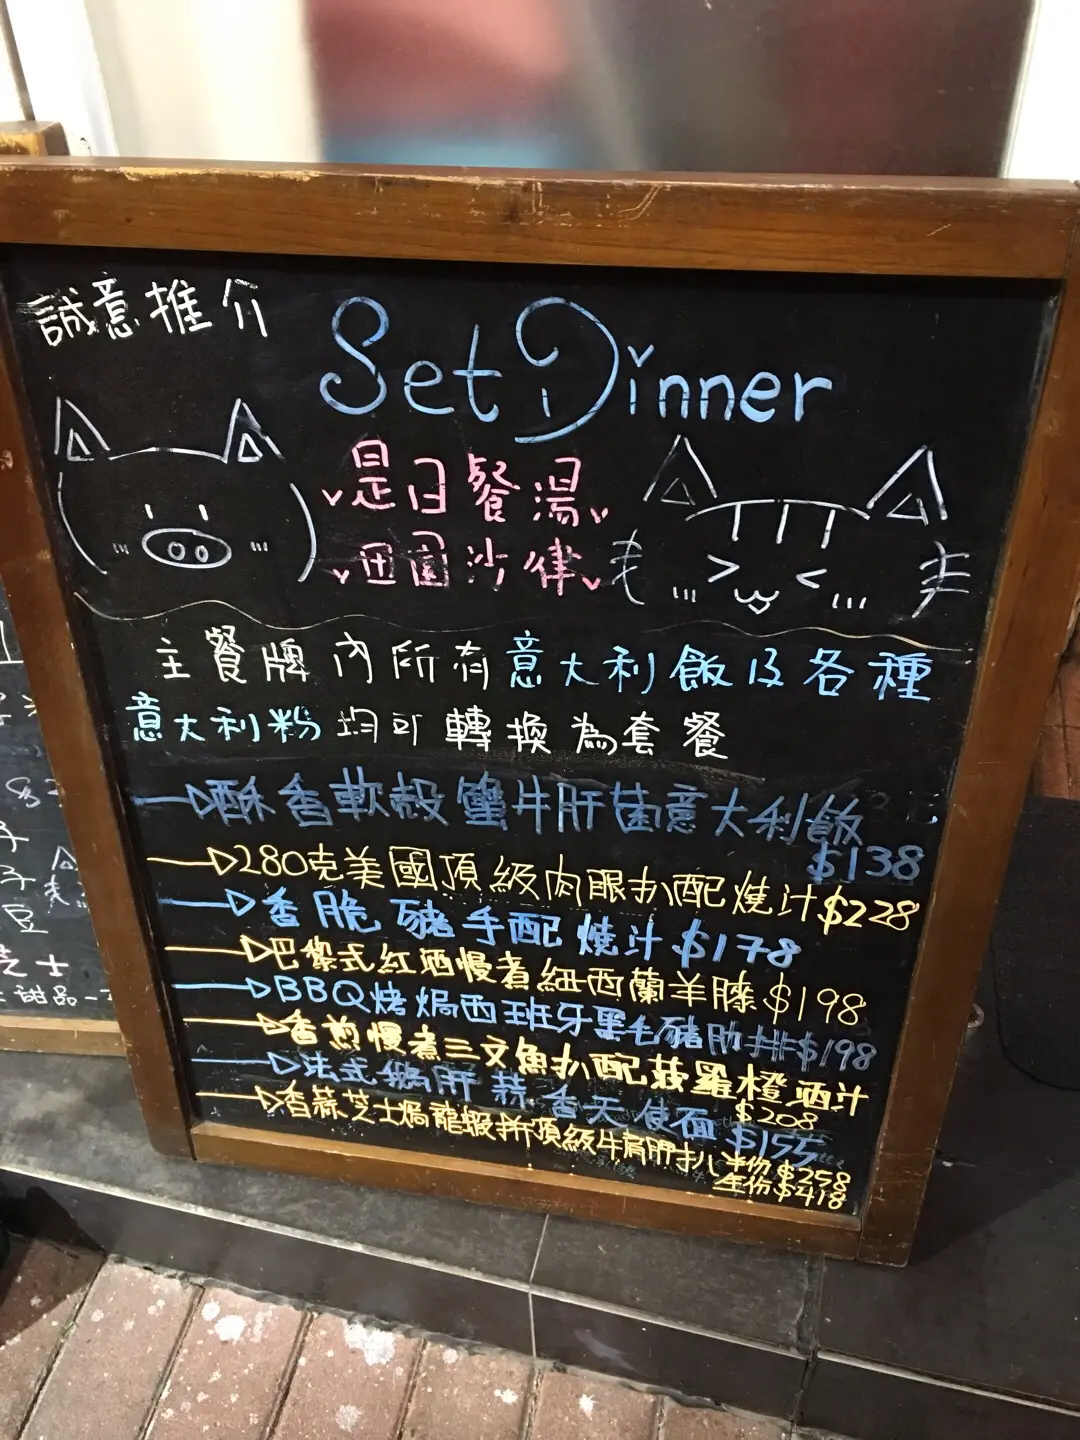 誠意推介
Set Dinner
是日餐湯
田園沙律
主餐牌內所有意大利飯及各種
意大利粉均可轉換為套餐
酥香軟殼蟹牛肝菌意大利飯
$138
280克美國頂級肉眼扒配燒汁$228
香脆豬手配燒汁$178
巴黎式紅酒慢煮紐西蘭羊膝$198
BBQ烤焗西班牙黑毛豬肋排$198
香煎慢煮三文魚扒配菠蘿橙酒汁
$208
法式鵝肝蒜香天使面$155
香蒜芝士焗龍蝦拼頂級牛肩胛扒半份$258
$418
豆
芝士
甜品